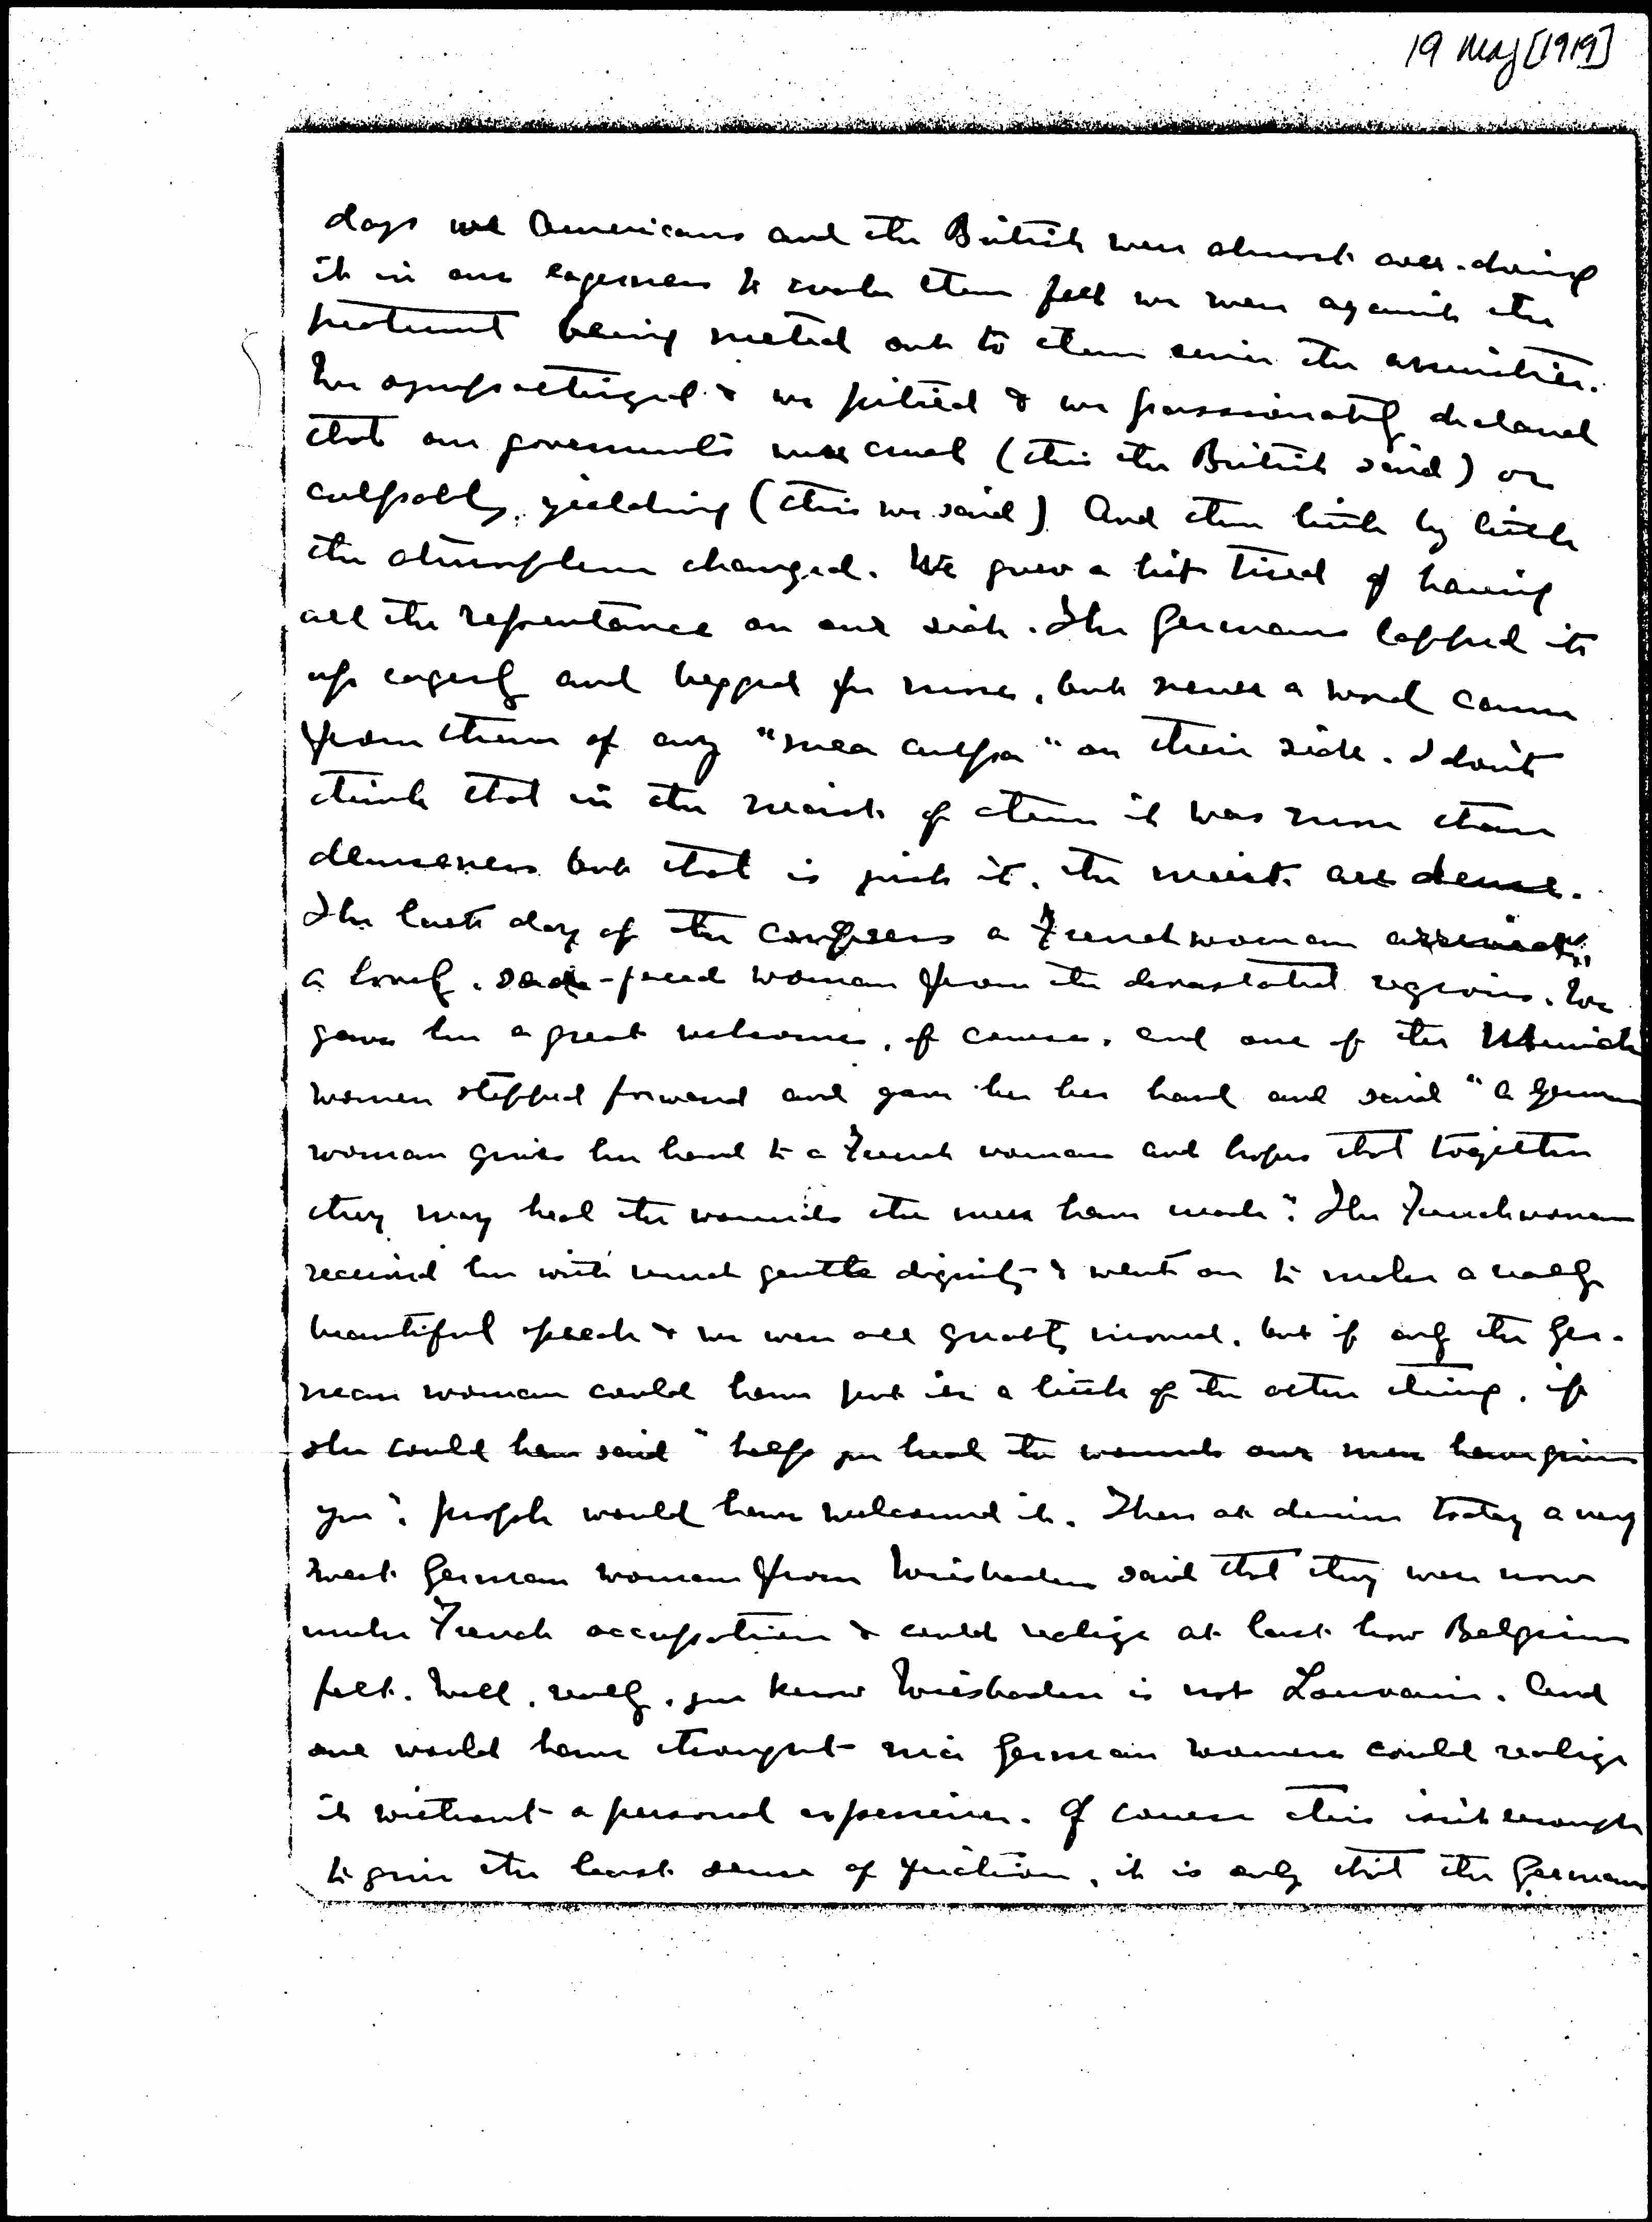 19 May [1919]
days we Americans and the British were almost over-doing
it in our eagerness to make them feel we were against the
treatment being meted out to them since the armistice.
We sympathized & we pitied & we passionately declared
that our governments were cruel (this the British said) or
culpably yielding (this we said). And then little by little
the atmosphere changed. We grew a bit tired of having
all the repentance on our side. The Germans lapped it
up eagerly and begged for more, but never a word came
from them of any "mea culpa" on their side. I don't
think that in the most of them it was more than
denseness but that is just it, the most are dense.
The last day of the congress a Frenchwoman arrived,
a lovely, sad-faced woman from the devastated regions. We
gave her a great welcome, of course, and one of the Munich
women stepped forward and gave her her hand and said "A German
woman gives her hand to a French woman and hopes that together
they may heal the wounds the men have made". The Frenchwoman
received her with much gentle dignity & went on to make a really
beautiful speech & we were all greatly moved, but if only the Ger-
man woman could have put in a little of the other thing, if
she could have said "help you heal the wounds our men have given
you", people would have welcomed it. Then at dinner today a very
sweet German woman from Wiesbaden said that they were now
under French occupation & could realize at last how Belgium
felt. Well, really, you know Wiesbaden is not Louvain. And
one would have thought nice German women could realize
it without a personal experience. Of course this isn't enough
to give the least sense of friction, it is only that the Germans